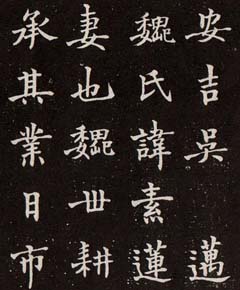 安吉吳邁
魏氏諱素蓮
妻也魏丗耕
承其業日市